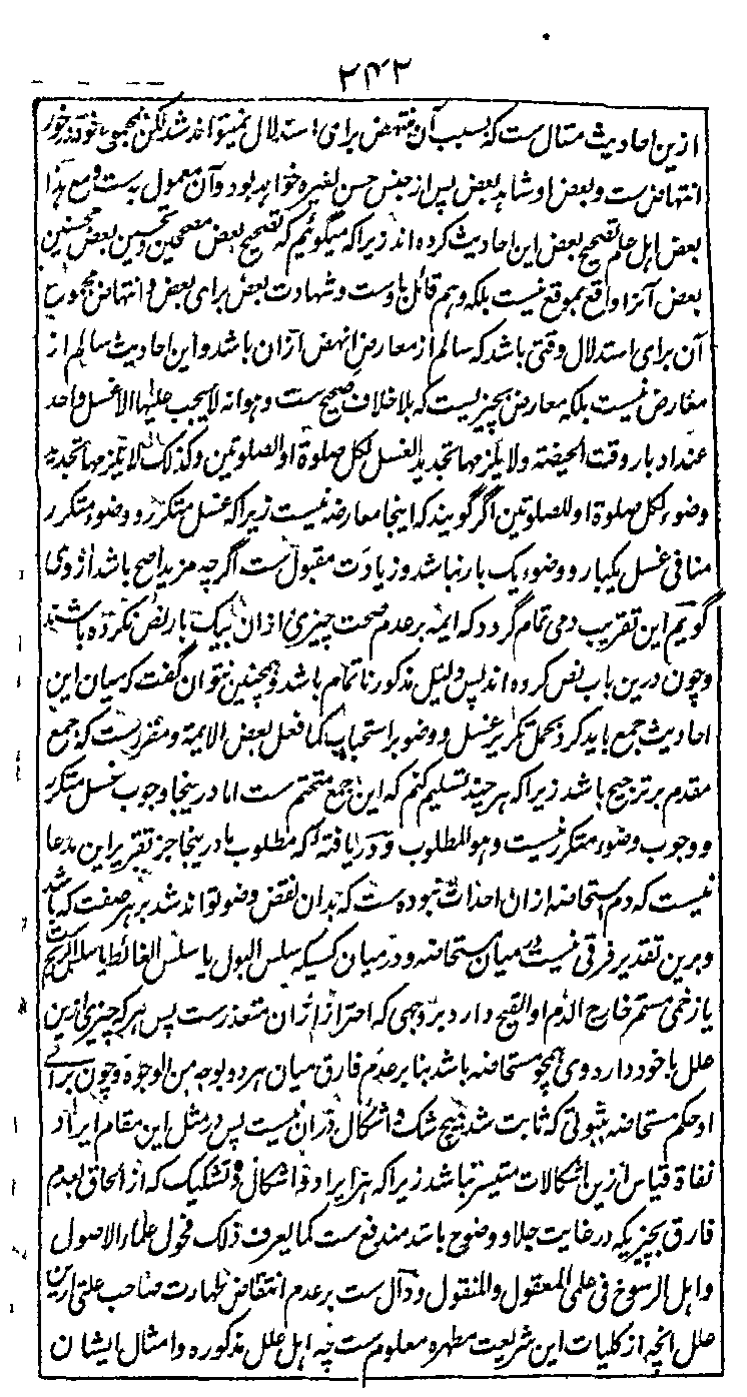 ۲۴۲
ازین احادیث مقال ست که بسبب آن منتهض برای استدلال نمیتواند شد لکن مجموع خود در خور
انتهاض ست و بعض او شاهد بعض پس از جنس حسن لغیره خواهد بود و آن معمول به ست و مع هذا
بعض اهل علم تصحیح بعض این احادیث کرده اند زیراکه میگوئیم که تصحیح بعض مصححین و تحسین بعض محسنین
بعض آنرا واقع بموقع نیست بلکه وهم قائل باوست و شهادت بعض برای بعض و انتهاض مجموع
آن برای استدلال وقتی باشد که سالم از معارض انهض ازان باشد و این احادیث سالم از
معارض نیست بلکه معارض بچیزیست که بلا خلاف صحیح ست و هو انه لا یجب علیها الا غسل واحد
عند ادبار وقت الحیضة ولا یلزمها تجدید الغسل لکل صلوة او الصلوتین وکذلک لا یلزمها تجدید
وضوء لکل صلوة او للصلوتین اگر گویند که اینجا معارضه نیست زیراکه غسل متکرر و وضوء متکرر
منافی غسل یکبار و وضوء یک بار نباشد و زیادت مقبول ست اگرچه مزید اصح باشد ازوی
گویم این تقریب دمی تمام گردد که ایمه بر عدم صحت چیزی ازان بیک بار نص نکرده باشند
و چون درین باب نص کرده اند پس دلیل مذکور ناتمام باشد و همچنین نتوان گفت که میان این
احادیث جمع باید کرد بحمل تکریر غسل و وضو بر استحباب کما فعل بعض الایمة و مقررست که جمع
مقدم بر ترجیح باشد زیراکه هر چند تسلیم کنم که این جمع متحتم ست اما درینجا وجوب غسل متکرر
و وجوب وضوء متکرر نیست و هو المطلوب و دریافته که مطلوب ما درینجا جز تقریر این مدعا
نیست که دم استحاضه ازان احداث نبوده ست که بدان نقض وضو تواند شد بر هر صفت که باشد
و برین تقدیر فرقی نیست در میان مستحاضه و درمیان کسیکه سلس البول یا سلس الغائط یا سلس الریح ست
یا زخمی مستمر خارج الدم او القیح دارد بر وجهی که احتراز ازان متعذرست پس هرکه چیزی ازین
علل با خود دارد وی همچو مستحاضه باشد بنا بر عدم فارق میان هر دو بوجه من الوجوه و چون برائے
او حکم مستحاضه بثبوتی که ثابت شد هیچ شک و اشکال دران نیست پس در مثل این مقام ایراد
نفاة قیاس ازین اشکالات متیسر نباشد زیراکه هر ایراد و اشکال و تشکیک که از الحاق بعدم
فارق بچیزیکه در غایت جلا و وضوح باشد مندفع ست کما یعرف ذلک فحول علماء الاصول
و اهل الرسوخ فی علمی المعقول والمنقول و دال ست بر عدم انتقاض طهارت صاحب علتی ازین
علل انچه از کلیات این شریعت مطهره معلوم ست چه اهل علل مذکوره و امثال ایشان